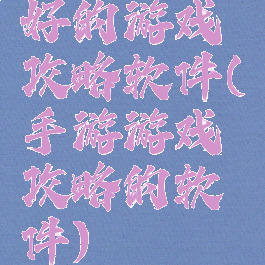 好的游戏
攻略软件(
手游游戏
攻略的软
件)